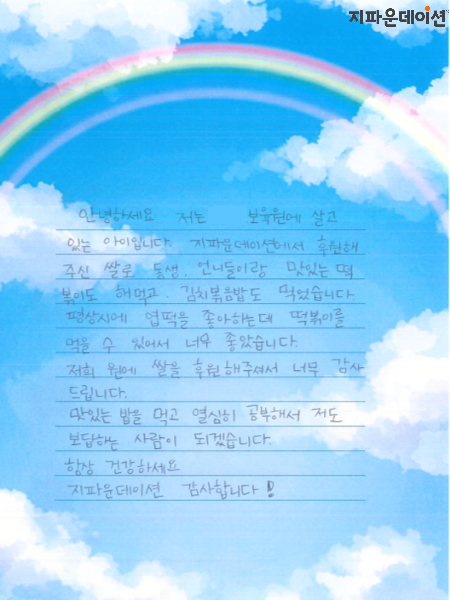 지파운데이션
안녕하세요 저는 보육원에 살고
있는 아이입니다. 지파운데이션에서 후원해
주신 쌀로 동생, 언니들이랑 맛있는 떡
볶이도 해먹고, 김치볶음밥도 먹었습니다.
평상시에 엽떡을 좋아하는데 떡볶이를
먹을 수 있어서 너무 좋았습니다.
저희 원에 쌀을 후원해주셔서 너무 감사
드립니다.
맛있는 밥을 먹고 열심히 공부해서 저도
보답하는 사람이 되겠습니다.
항상 건강하세요
지파운데이션 감사합니다!